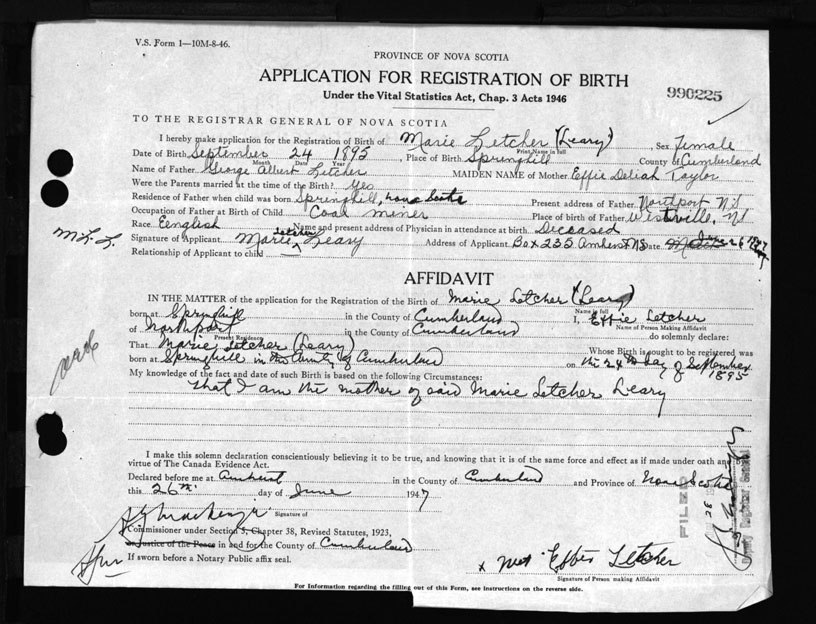 V.S. Form 1—10M-8-46.
PROVINCE OF NOVA SCOTIA
APPLICATION FOR REGISTRATION OF BIRTH
990225
Under the Vital Statistics Act, Chap. 3 Acts 1946
TO THE REGISTRAR GENERAL OF NOVA SCOTIA
I hereby make application for the Registration of Birth of Marie Letcher (Leary), Sex Female
Print Name in full
Date of Birth September 24 1895, Place of Birth Springhill County of Cumberland
Month Date Year
Name of Father George Albert Letcher MAIDEN NAME of Mother Effie Deliah Taylor
Were the Parents married at the time of the Birth? Yes
Residence of Father when child was born Springhill, Nova Scotia Present address of Father Northport NS
Occupation of Father at Birth of Child Coal miner Place of birth of Father Westville, NS
Race Eenglish Name and present address of Physician in attendance at birth Deceased
Signature of Applicant Marie Letcher Leary Address of Applicant Box 235 Amherst NS Date June 26 1947
M. L. L.
Relationship of Applicant to child
AFFIDAVIT
IN THE MATTER of the application for the Registration of the Birth of Marie Letcher (Leary)
Name in full
born at Springhill in the County of Cumberland I, Effie Letcher
Name of Person Making Affidavit
of Northport in the County of Cumberland do solemnly declare:
Present Residence
That Marie Letcher (Leary) Whose Birth is sought to be registered was
born at Springhill in the County of Cumberland on the 24th day of September 1895
My knowledge of the fact and date of such Birth is based on the following Circumstances:
That I am the mother of said Marie Letcher Leary
I make this solemn declaration conscientiously believing it to be true, and knowing that it is of the same force and effect as if made under oath and by
virtue of The Canada Evidence Act.
Declared before me at Amherst in the County of Cumberland and Province of Nova Scotia
this 26th day of June 1947
Signature of
Commissioner under Section 5, Chapter 38, Revised Statutes, 1923,
or Justice of the Peace in and for the County of Cumberland
If sworn before a Notary Public affix seal.
x Mrs Effie Letcher
Signature of Person making Affidavit
FILED
For Information regarding the filling out of this Form, see instructions on the reverse side.